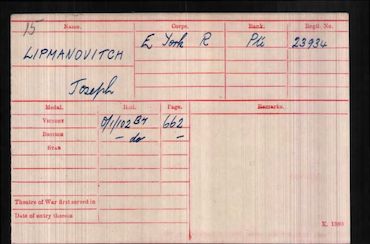 15
Name. Corps. Rank. Regtl. No.
LIPMANOVITCH E York R Pte 23934
Joseph
Medal. Roll. Page. Remarks.
VICTORY O/1/102 B7 662
BRITISH - do -
STAR
Theatre of War first served in
Date of entry therein
K. 1380